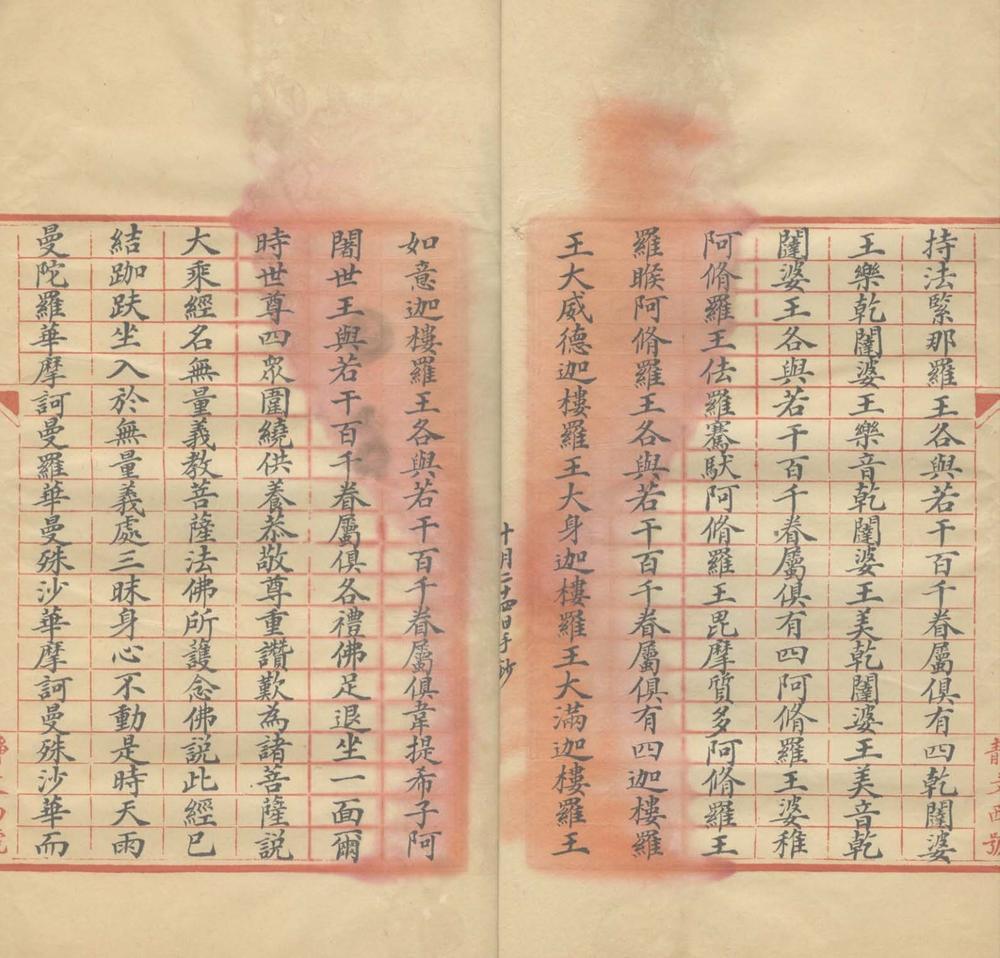 持法緊那羅王各與若干百千眷屬俱有四乾闥婆
王樂乾闥婆王樂音乾闥婆王美乾闥婆王美音乾
闥婆王各與若干百千眷屬俱有四阿脩羅王婆稚
阿脩羅王佉羅騫馱阿脩羅王毘摩質多阿脩羅王
羅睺阿脩羅王各與若干百千眷屬俱有四迦樓羅
王大威德迦樓羅王大身迦樓羅王大滿迦樓羅王
十月二十四日手鈔
如意迦樓羅王各與若干百千眷屬俱韋提希子阿
闍世王與若干百千眷屬俱各禮佛足退坐一面爾
時世尊四眾圍繞供養恭敬尊重讚歎為諸菩薩説
大乘經名無量義教菩薩法佛所護念佛説此經已
結跏趺坐入於無量義處三昧身心不動是時天雨
曼陀羅華摩訶曼羅華曼殊沙華摩訶曼殊沙華而